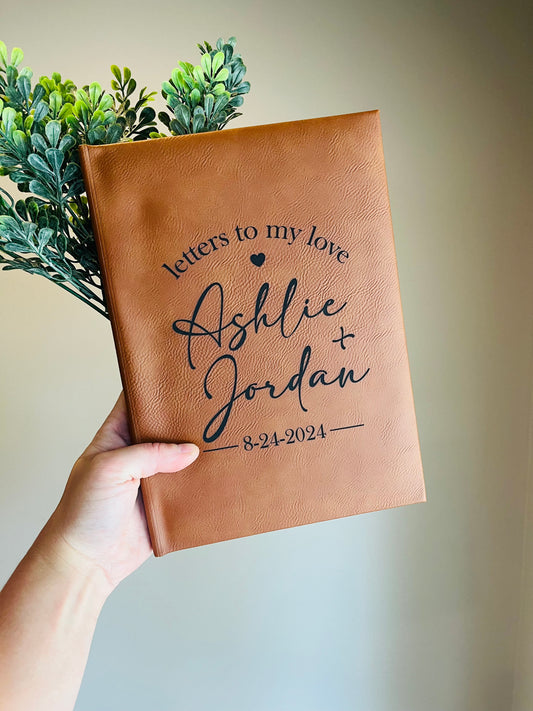 letters to my love
Ashlie
+
Jordan
8-24-2024